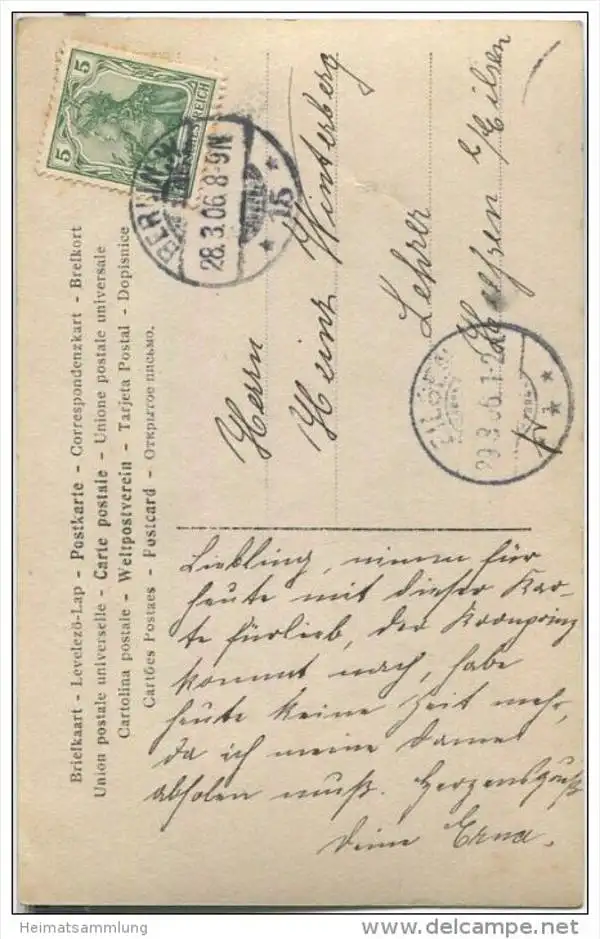 Briefkaart - Levelezö-Lap - Postkarte - Correspondenzkart - Brefkort
Union postale universelle - Carte postale - Unione postale universale
Cartolina postale - Weltpostverein - Tarjeta Postal - Dopisnice
Cartões Postaes - Postcard - Открытое письмо.
5
5
REICH
BERLIN
28.3.06. 8-9N
15
Herrn
Heinz Winterberg
Lehrer
Eilsen
29.3.06. 1-2
Liebling, nimm für
heute mit dieser Kar-
te fürlieb, der Kronprinz
kommt nach, habe
heute keine Zeit mehr,
da ich meine Damen
abholen muß. Herzensgruß
Deine Erna.
Heimatsammlung
www.delcampe.net